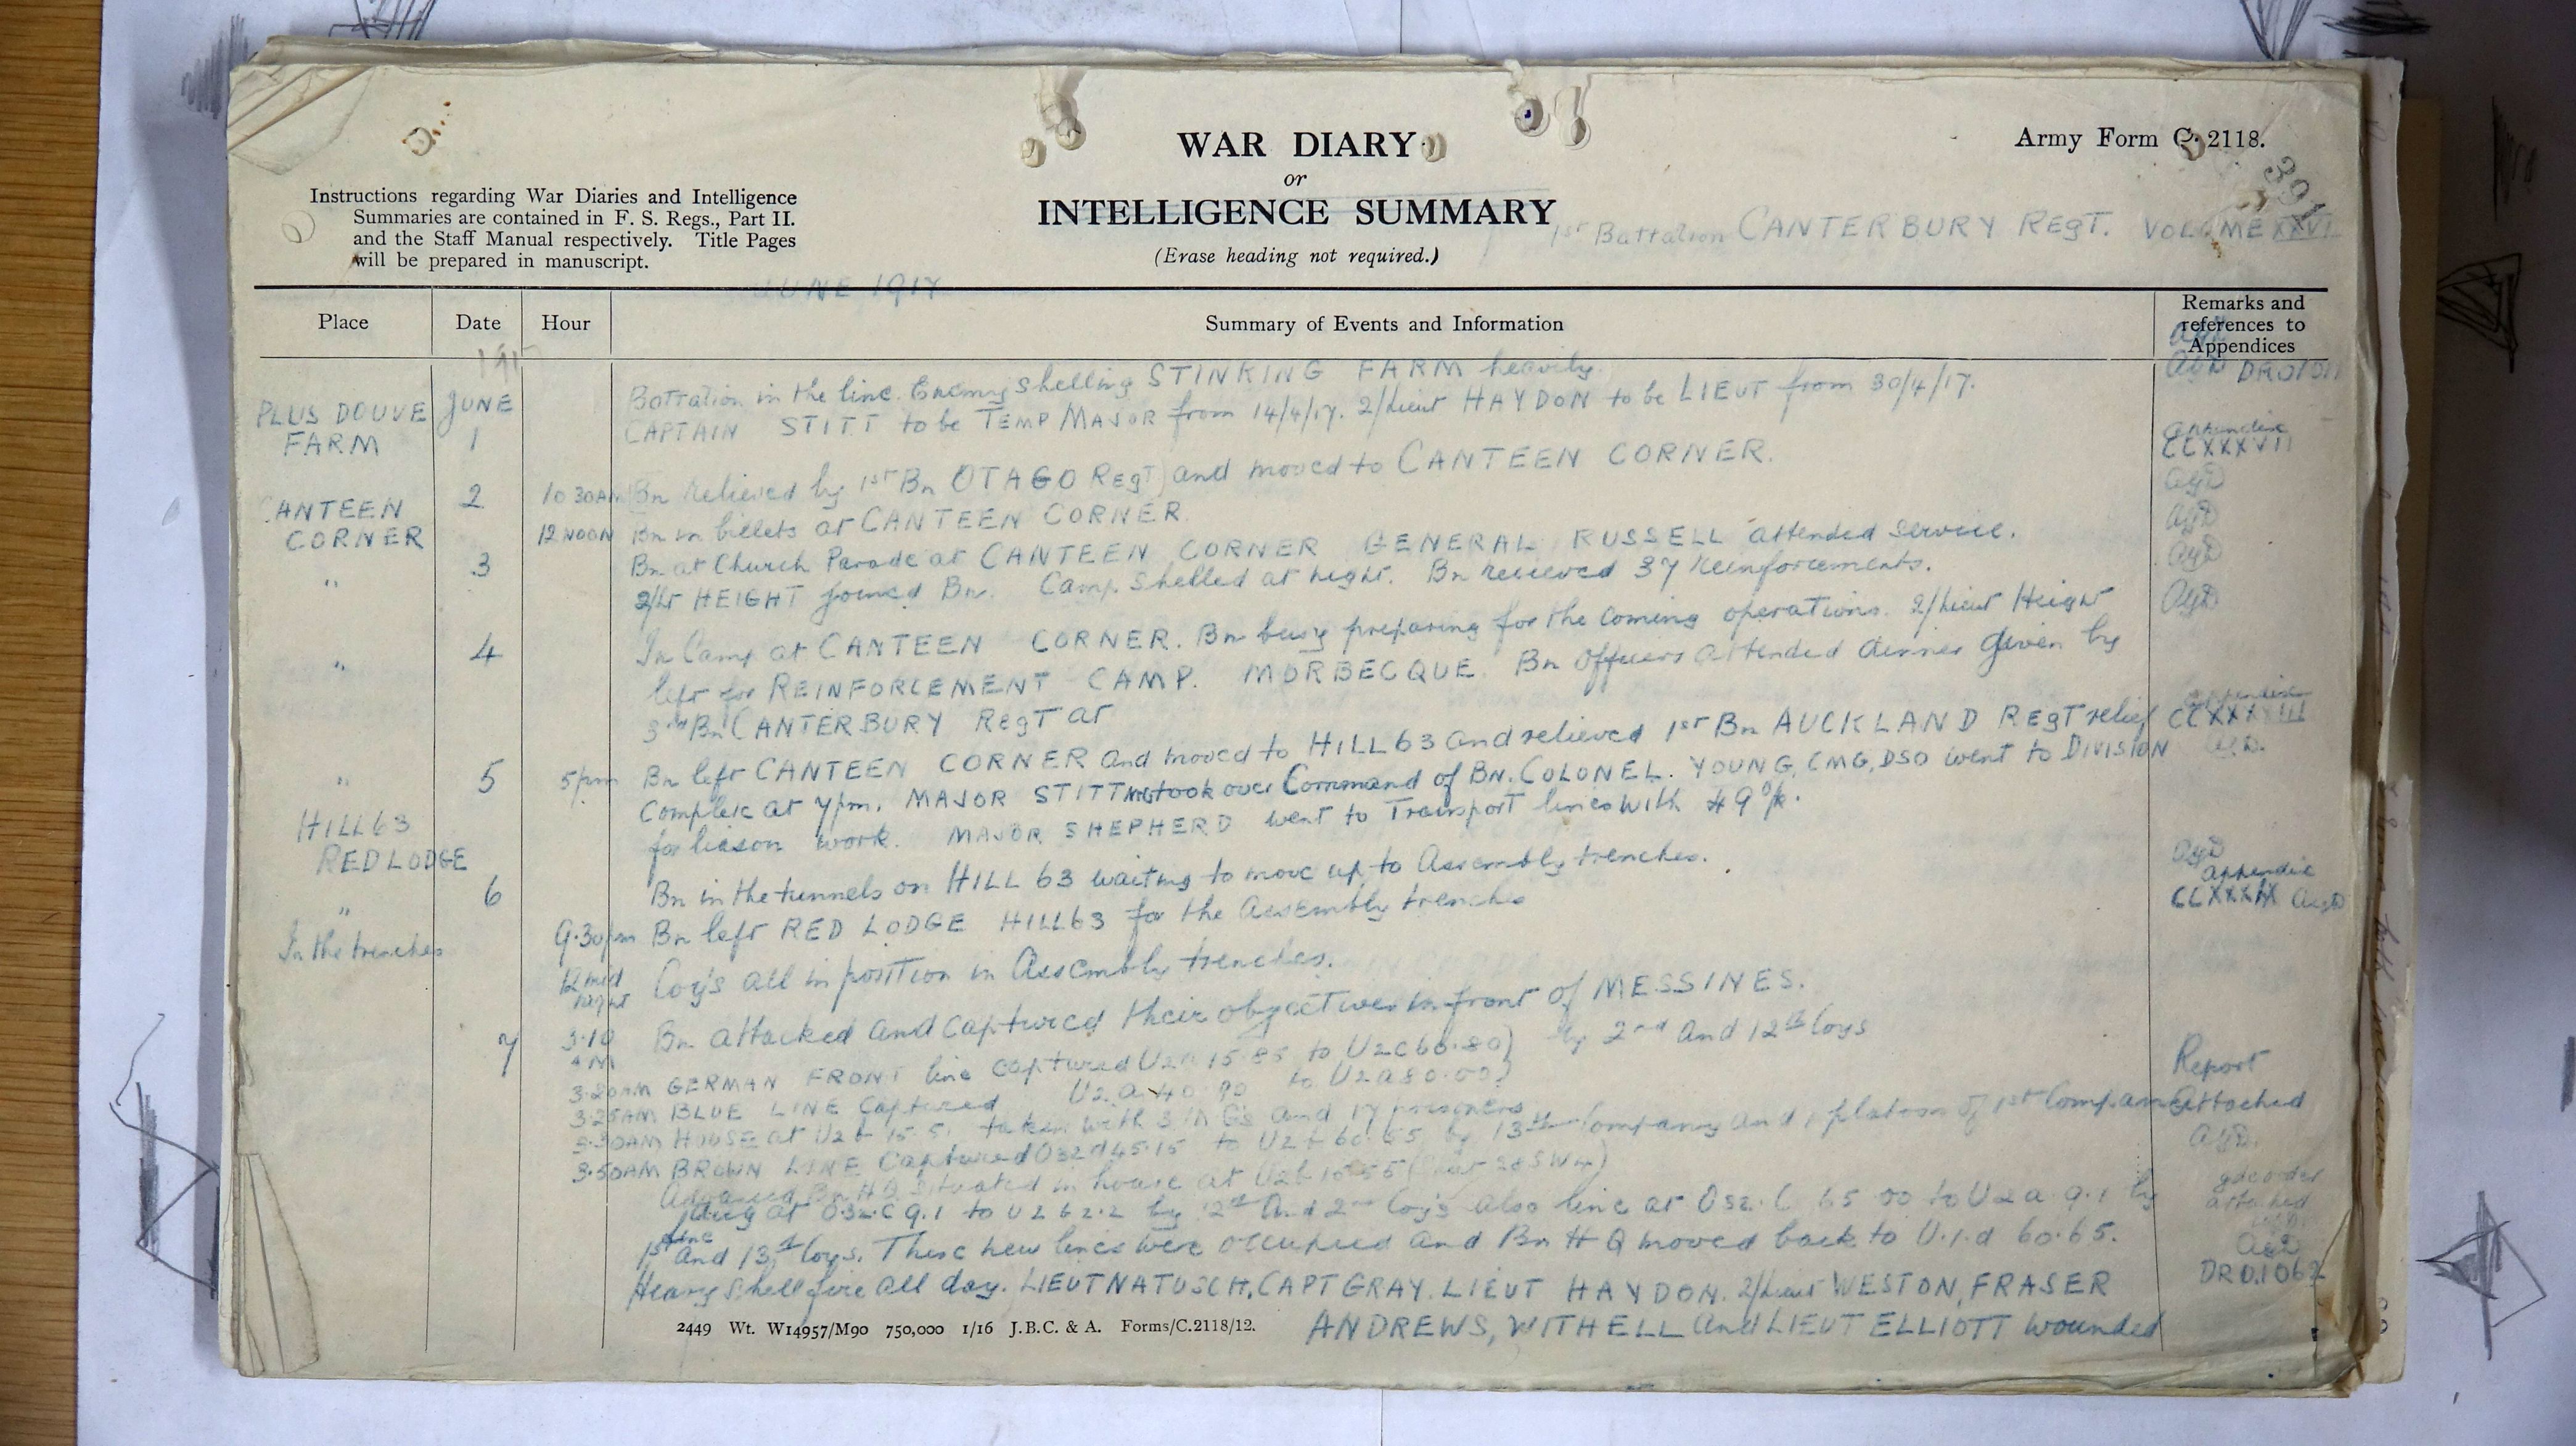 WAR DIARY
or
INTELLIGENCE SUMMARY
(Erase heading not required.)
Army Form C. 2118.
Instructions regarding War Diaries and Intelligence
Summaries are contained in F. S. Regs., Part II.
and the Staff Manual respectively. Title Pages
will be prepared in manuscript.
1st Battalion CANTERBURY REgT. VOLUME XXVI
JUNE 1917
Place Date Hour Summary of Events and Information Remarks and references to Appendices
PLUS DOUVE FARM JUNE 1 Battalion in the line. Enemy shelling STINKING FARM heavily.
CAPTAIN STITT to be TEMP MAJOR from 14/4/17. 2/Lieut HAYDON to be LIEUT from 30/4/17.
Appendix CCXXXVII
CANTEEN CORNER 2 10 30AM Bn relieved by 1st Bn OTAGO REgT and moved to CANTEEN CORNER.
12 NOON Bn in billets at CANTEEN CORNER
" 3 Bn at Church Parade at CANTEEN CORNER GENERAL RUSSELL attended service.
2/Lt HEIGHT joined Bn. Camp shelled at night. Bn received 37 Reinforcements.
" 4 In Camp at CANTEEN CORNER. Bn busy preparing for the coming operations. 2/Lieut Height
left for REINFORCEMENT CAMP. MORBECQUE. Bn Officers attended dinner given by
3rd Bn CANTERBURY REgT at
" 5 5pm Bn left CANTEEN CORNER and moved to HILL 63 and relieved 1st Bn AUCKLAND REgT relief
Appendix CCXXXVIII
HILL 63 RED LODGE complete at 7pm. MAJOR STITT took over Command of BN. COLONEL. YOUNG, CMG, DSO went to DIVISION
for liason work. MAJOR SHEPHERD went to Transport lines with
" 6 Bn in the tunnels on HILL 63 waiting to move up to Assembly trenches.
Appendix CCXXXIX
In the trenches 9.30pm Bn left RED LODGE HILL 63 for the Assembly trenches
12 mid night Coy's all in position in Assembly trenches.
7 3.10 AM Bn attacked and captured their objectives in front of MESSINES.
3.20AM GERMAN FRONT line captured U2A 15.85 to U2C 60.80 } by 2nd and 12th Coys
3.25AM BLUE LINE Captured U2.a.40.90 to U2a 80.00 }
3.30AM HOUSE at U2b 15.5 taken with 3 MG's and 17 prisoners
3.50AM BROWN LINE Captured O32d 45.15 to U2b 60.65 by 13th Company and 1 platoon of 1st Company
Report Attached
Advanced Bn HQ situated in house at U2b 15.55
dug at O32.C 9.1 to U2b 2.2 by 12th and 2nd Coy's also line at O32.C 65 00 to U2a 9.1 by
1st and 13th Coys. These new lines were occupied and Bn HQ moved back to U.1.d 60.65.
attached
Heavy shell fire all day. LIEUT NATUSCH, CAPT GRAY. LIEUT HAYDON. 2/Lieut WESTON, FRASER
DRO.1062
ANDREWS, WITHELL and LIEUT ELLIOTT wounded
2449 Wt. W14957/M90 750,000 1/16 J.B.C. & A. Forms/C.2118/12.